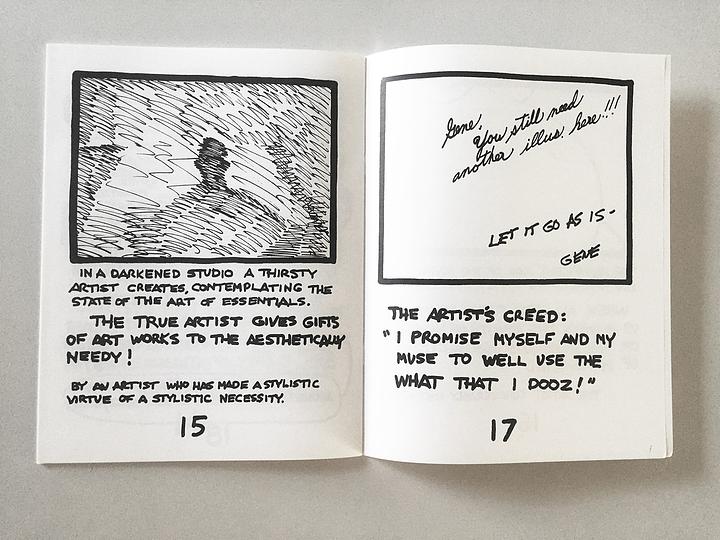 IN A DARKENED STUDIO A THIRSTY
ARTIST CREATES, CONTEMPLATING THE
STATE OF THE ART OF ESSENTIALS.
THE TRUE ARTIST GIVES GIFTS
OF ART WORKS TO THE AESTHETICALLY
NEEDY!
BY AN ARTIST WHO HAS MADE A STYLISTIC
VIRTUE OF A STYLISTIC NECESSITY.
15
Gene,
you still need
another illus. here!!!
LET IT GO AS IS -
GENE
THE ARTIST'S CREED:
"I PROMISE MYSELF AND MY
MUSE TO WELL USE THE
WHAT THAT I DOOZ!"
17